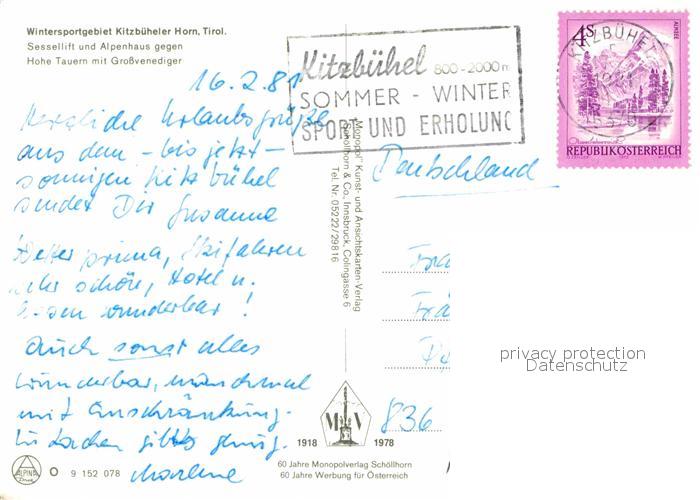 Wintersportgebiet Kitzbüheler Horn, Tirol.
Sessellift und Alpenhaus gegen
Hohe Tauern mit Großvenediger
16.2.81
Herzliche Urlaubsgrüße
aus dem - bis jetzt -
sonnigen Kitzbühel
sendet Dir Susanne
Wetter prima, Skifahren
sehr schön, Hotel u.
Essen wunderbar!
Auch sonst alles
wunderbar, manchmal
mit Einschränkung.
Zu Lachen gibts genug.
Marlene
ALPINA
9 152 078
Kitzbühel 800-2000m
SOMMER - WINTER
SPORT UND ERHOLUNG
KITZBÜHEL
4S
ALMSEE
REPUBLIK ÖSTERREICH
Deutschland
Monopol Kunst- und Ansichtskarten-Verlag
Schöllhorn & Co., Innsbruck, Colingasse 6
Tel. Nr. 05222/29816
Fra
836
privacy protection
Datenschutz
M V
1918 1978
60 Jahre Monopolverlag Schöllhorn
60 Jahre Werbung für Österreich